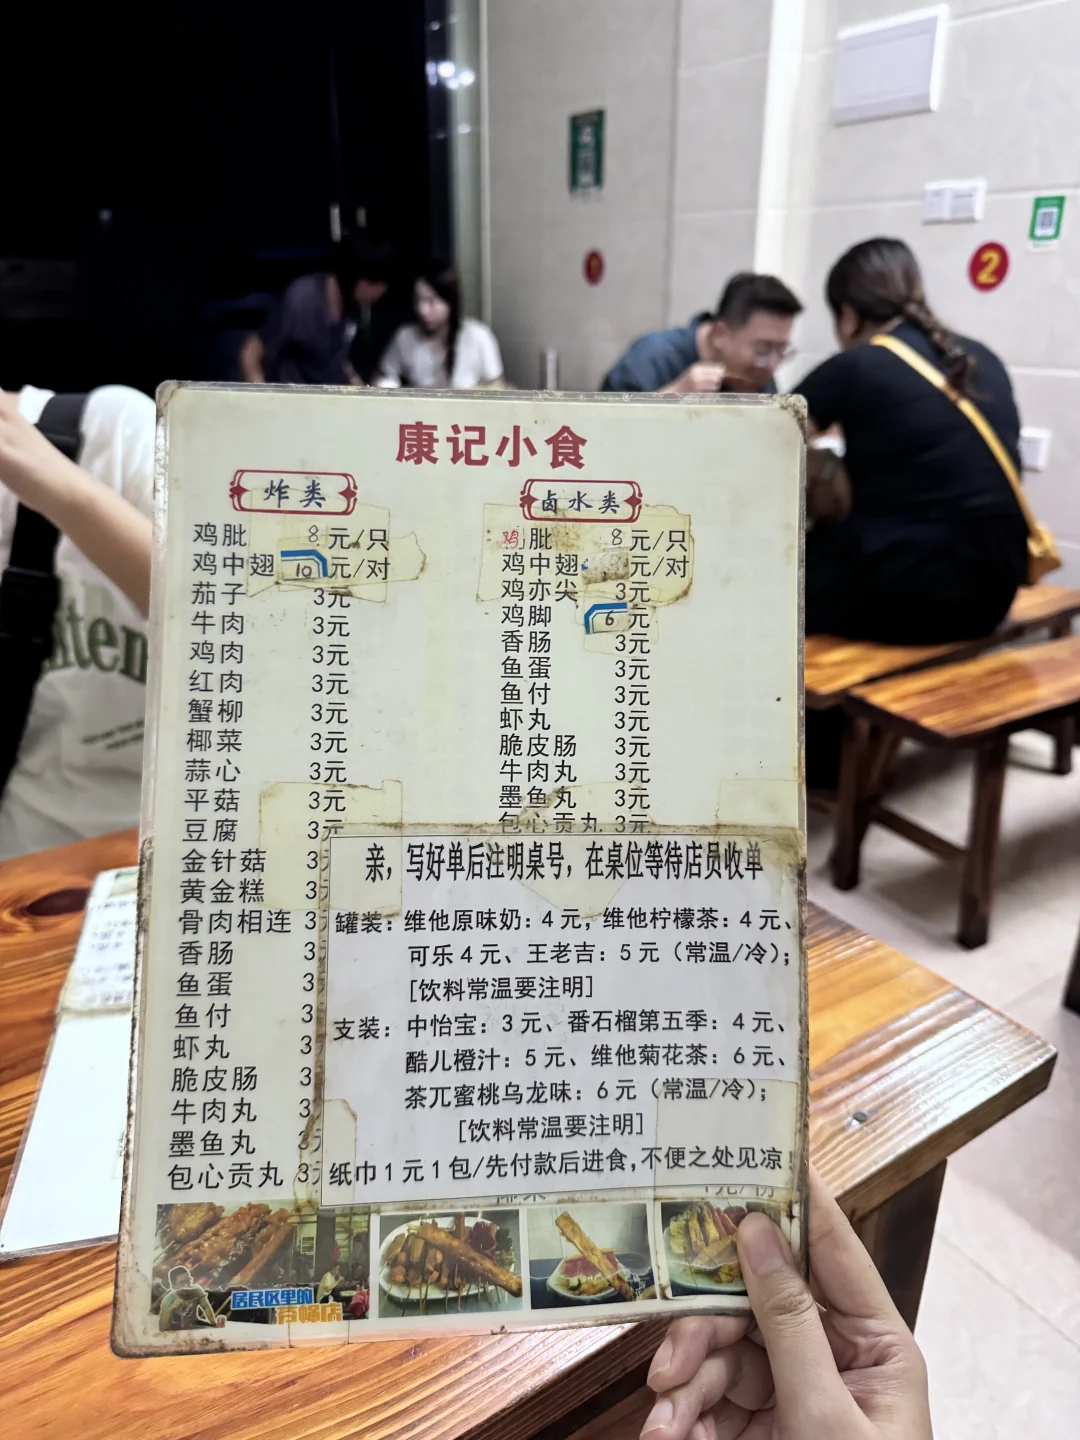 康记小食
炸类
鸡肶 8元/只
鸡中翅 10元/对
茄子 3元
牛肉 3元
鸡肉 3元
红肉 3元
蟹柳 3元
椰菜 3元
蒜心 3元
平菇 3元
豆腐 3元
金针菇 3
黄金糕 3
骨肉相连 3
香肠 3
鱼蛋 3
鱼付 3
虾丸 3
脆皮肠 3
牛肉丸 3
墨鱼丸 3
包心贡丸 3
卤水类
鸡肶 8元/只
鸡中翅 元/对
鸡亦尖 3元
鸡脚 6元
香肠 3元
鱼蛋 3元
鱼付 3元
虾丸 3元
脆皮肠 3元
牛肉丸 3元
墨鱼丸 3元
包心贡丸 3元
亲，写好单后注明桌号，在桌位等待店员收单
罐装：维他原味奶：4元，维他柠檬茶：4元、
可乐4元、王老吉：5元（常温/冷）；
[饮料常温要注明]
支装：中怡宝：3元、番石榴第五季：4元、
酷儿橙汁：5元、维他菊花茶：6元、
茶兀蜜桃乌龙味：6元（常温/冷）；
[饮料常温要注明]
纸巾1元1包/先付款后进食,不便之处见凉！
居民区里的
2